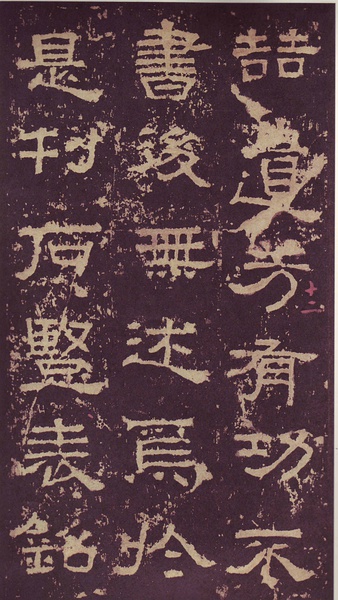 喆遺芳有功不
十二
書後無述焉於
是刊石竪表銘